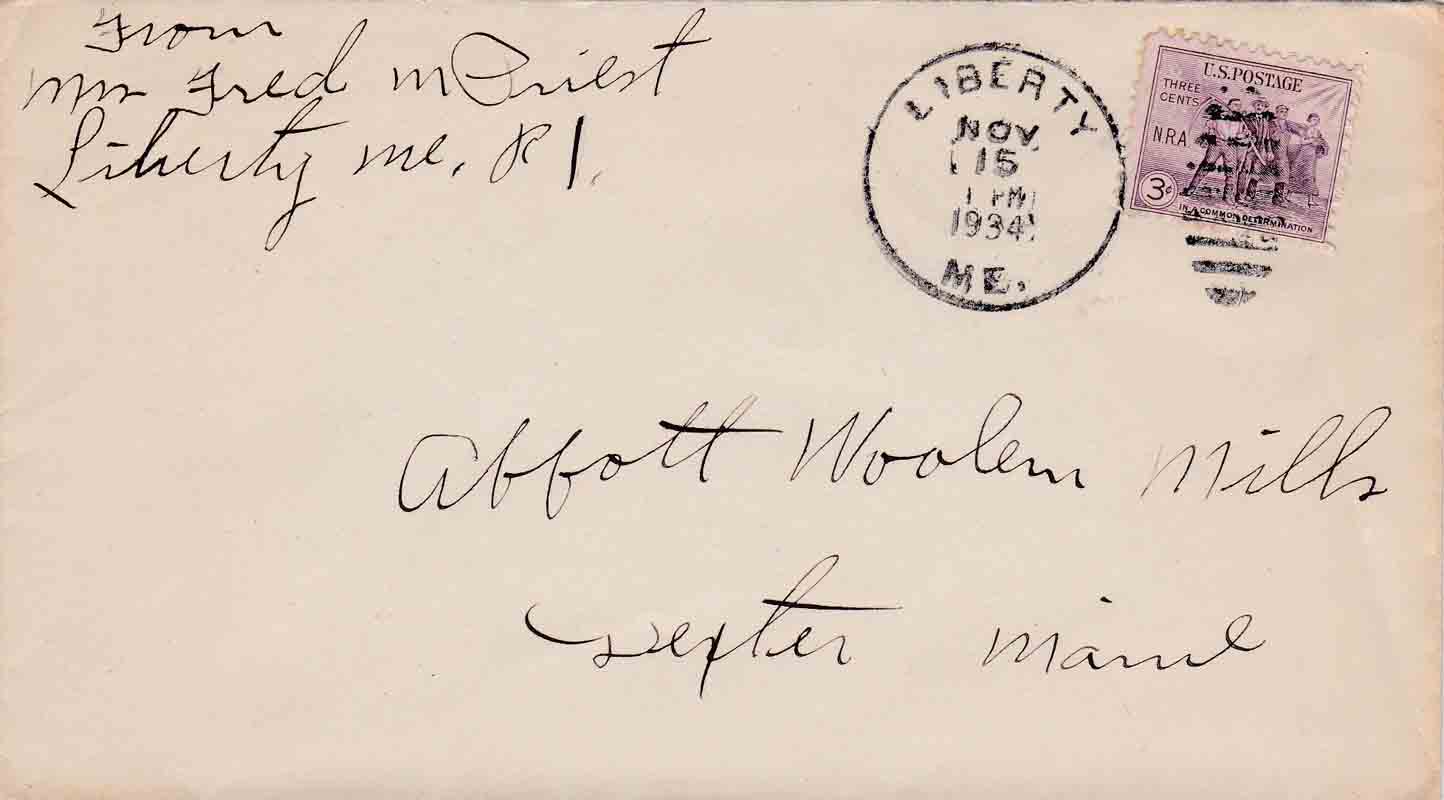 From
Mrs Fred M Priest
Liberty Me. R 1.
LIBERTY
NOV
15
1 PM
1934
ME.
U.S. POSTAGE
THREE
CENTS
NRA
3¢
IN A COMMON DETERMINATION
Abbott Woolen Mills
Dexter Maine